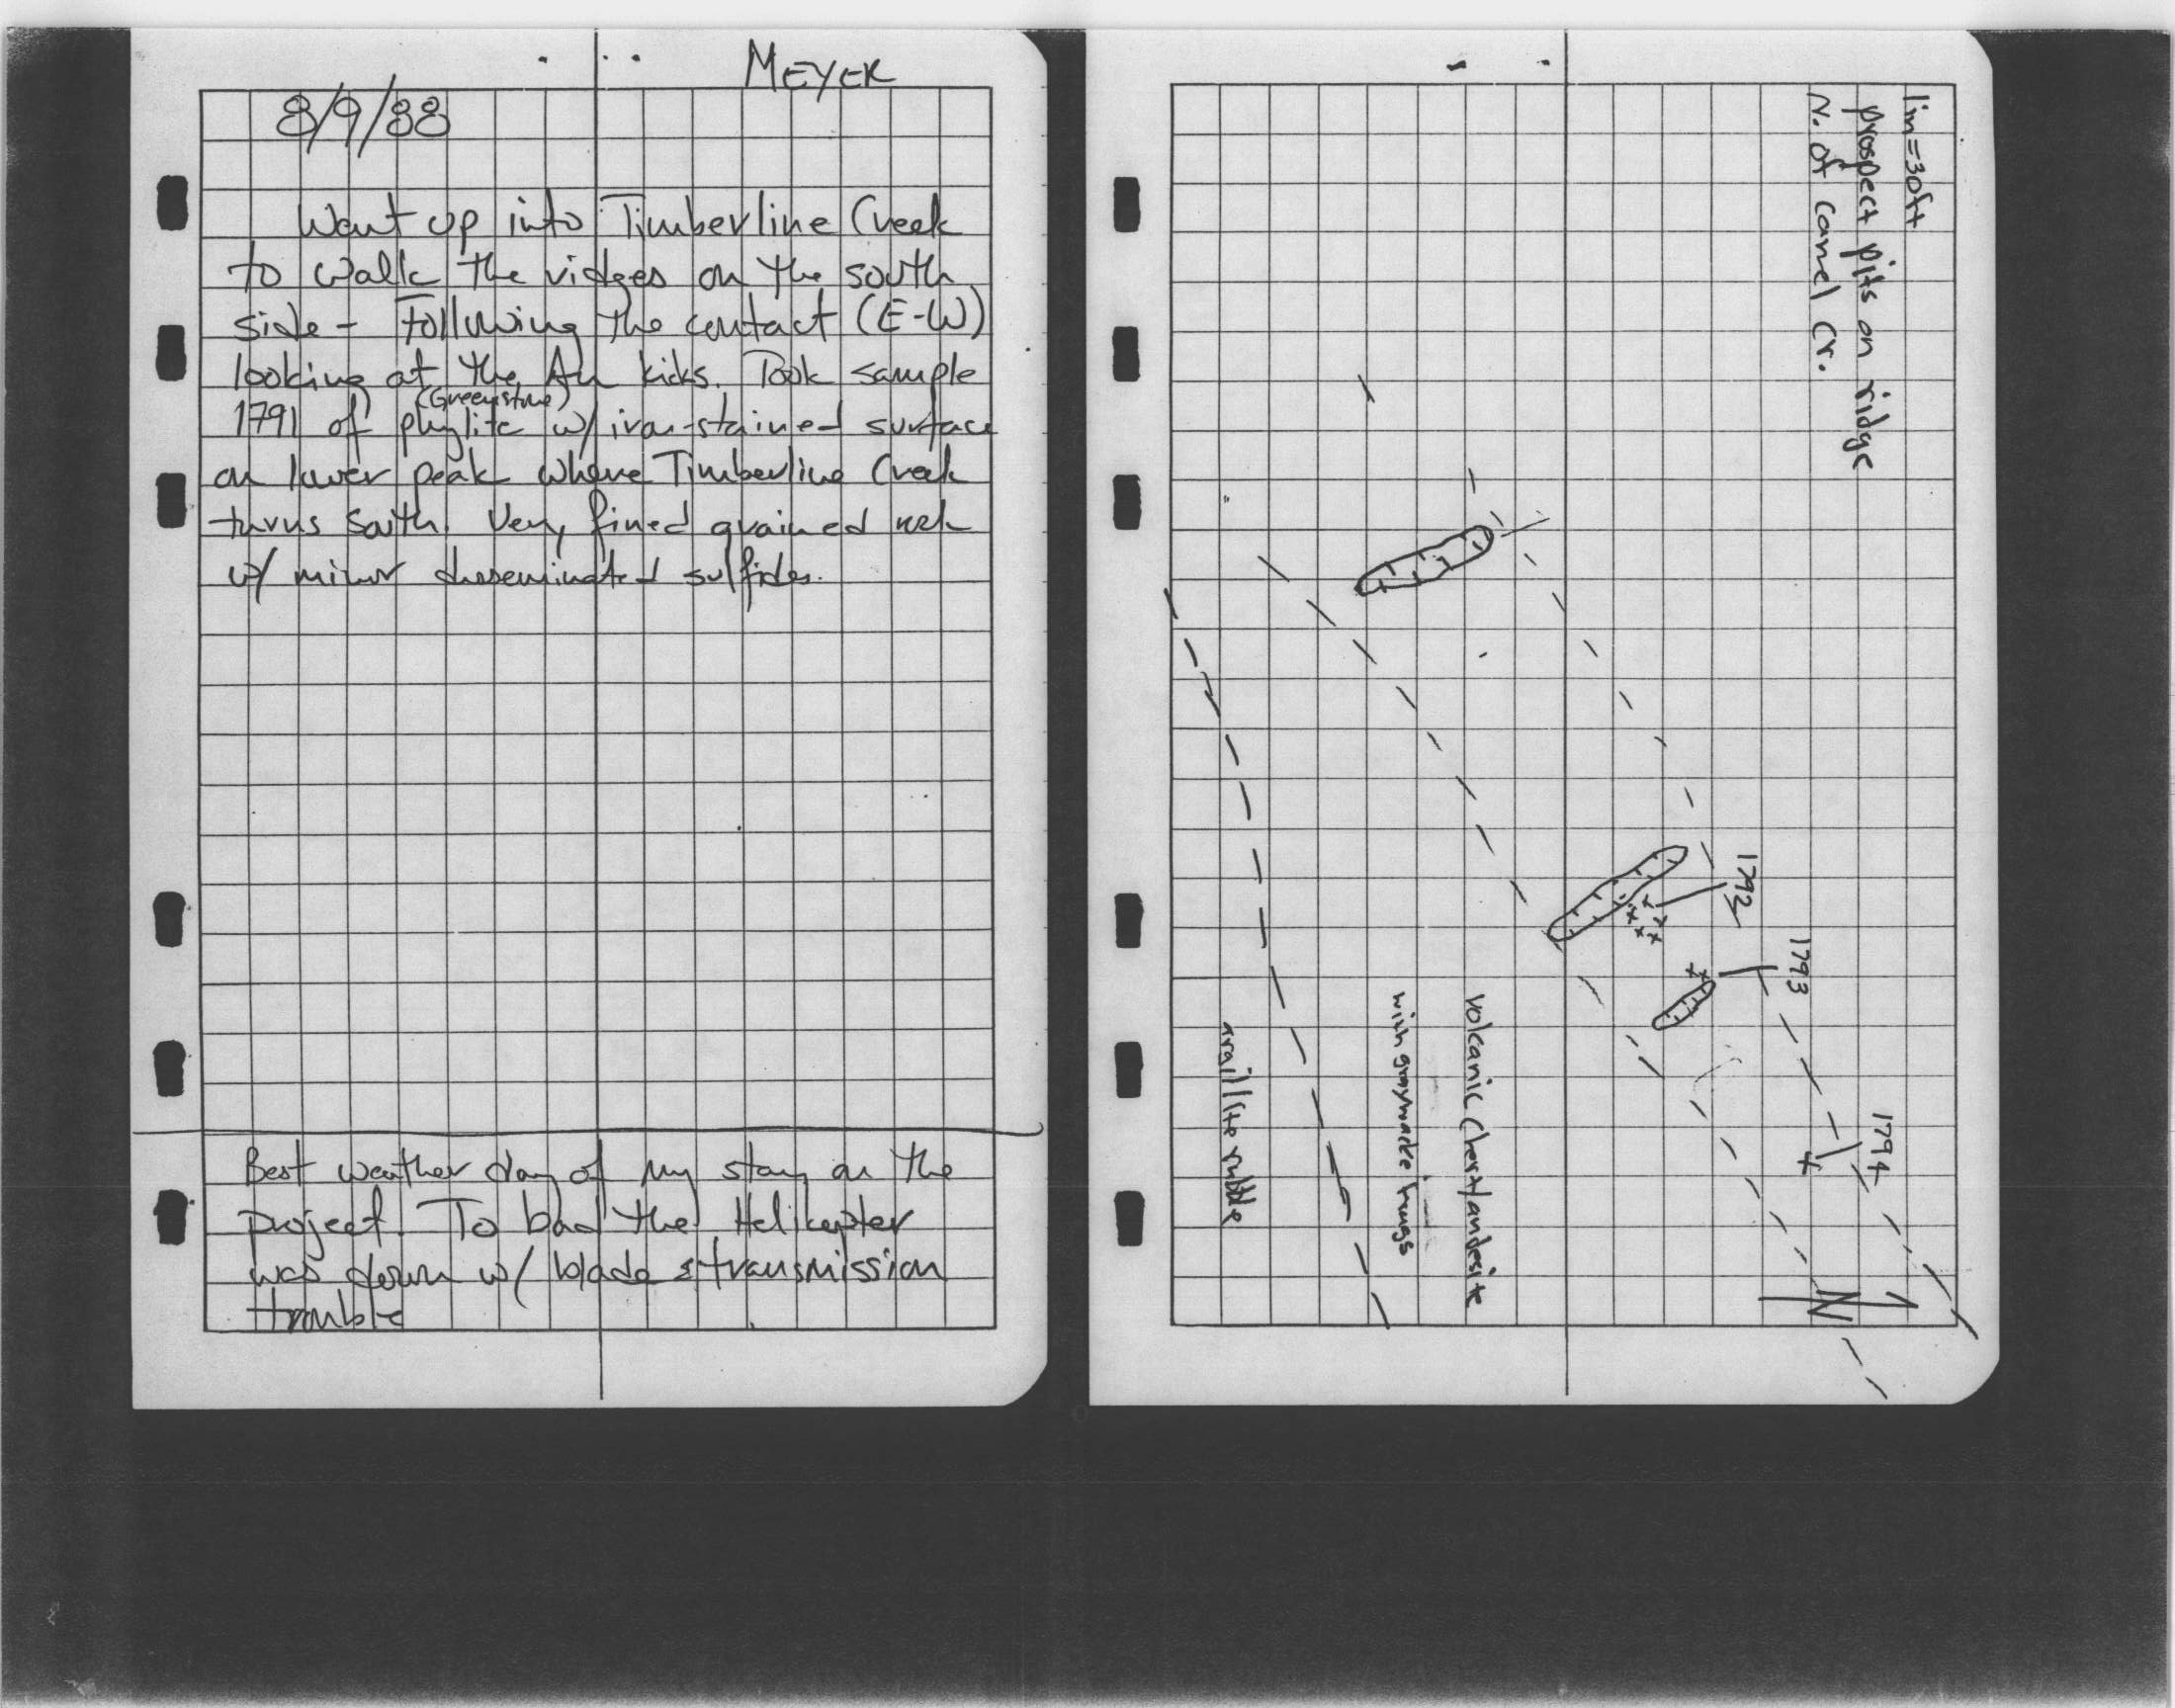 MEYER
8/9/88
Went up into Timberline Creek
to walk the ridges on the south
side - Following the contact (E-W)
looking at the Au kicks. Took sample
(Greenstone)
1791 of phyllite w/ iron-stained surface
on lower peak where Timberline Creek
turns South. Very fined grained rock
w/ minor disseminated sulfides.
Best weather day of my stay on the
project. To bad the Helicopter
was down w/ blade & transmission
trouble
1in=30ft
prospect pits on ridge
N. of Camel Cr.
1792
1793
1794
N
volcanic chert/andesite
with graywacke
argillite rubble